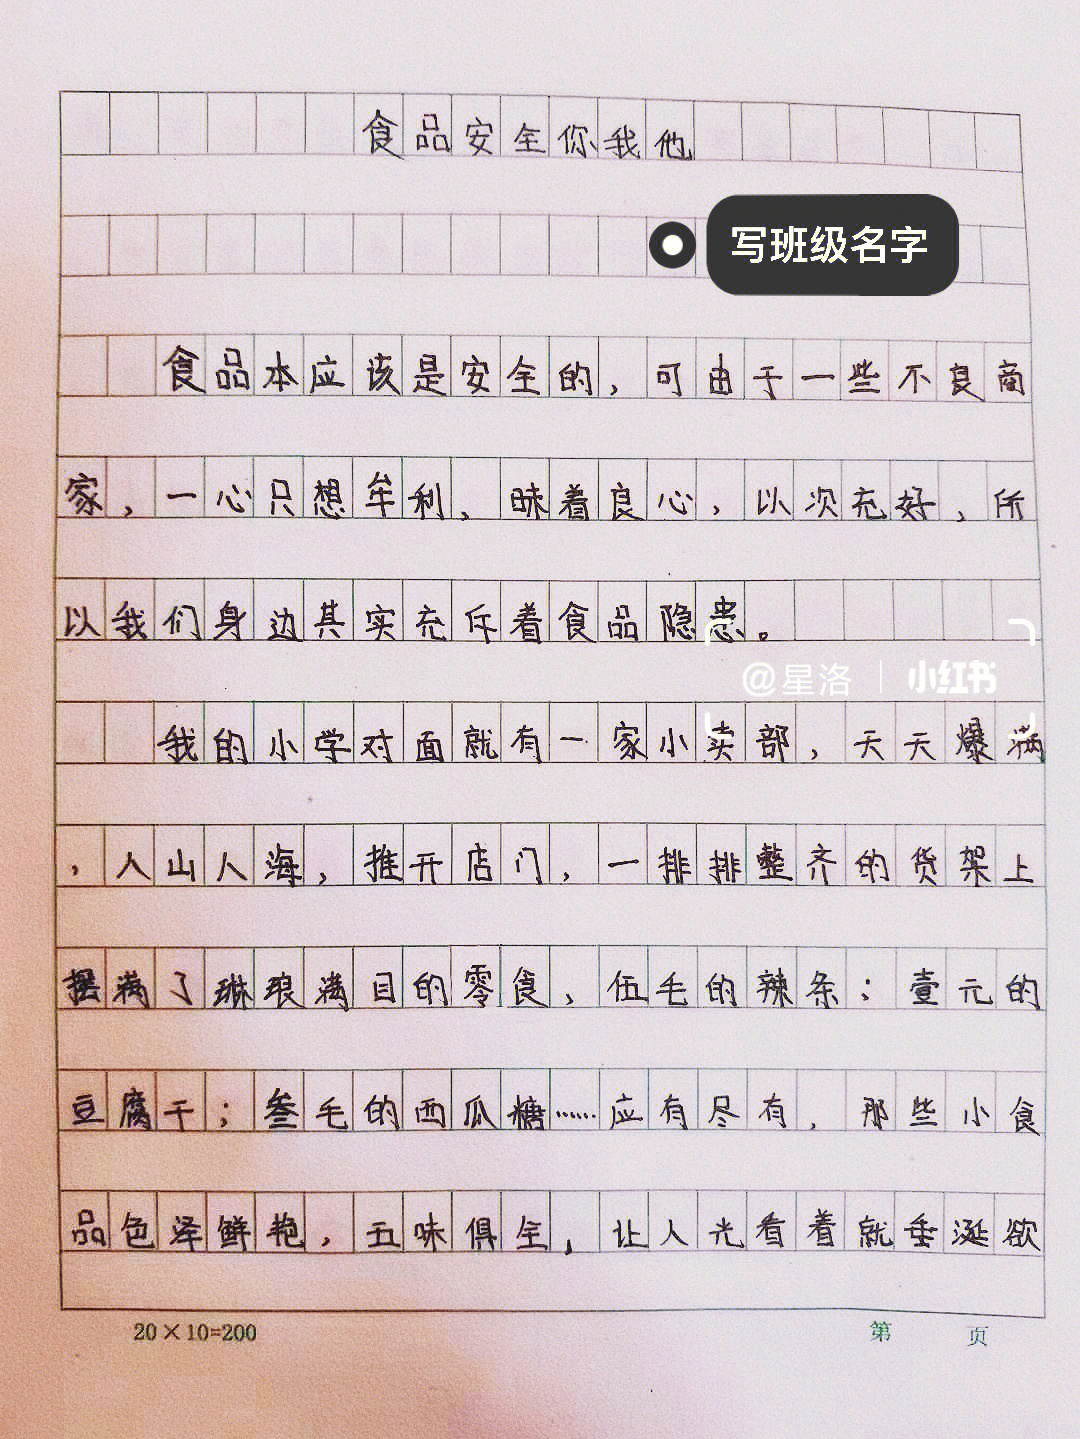 食品安全你我他
写班级名字
食品本应该是安全的，可由于一些不良商
家，一心只想牟利，昧着良心，以次充好，所
以我们身边其实充斥着食品隐患。
@星洛 | 小红书
我的小学对面就有一家小卖部，天天爆满
，人山人海，推开店门，一排排整齐的货架上
摆满了琳琅满目的零食，伍毛的辣条；壹元的
豆腐干；叁毛的西瓜糖……应有尽有，那些小食
品色泽鲜艳，五味俱全，让人光看着就垂涎欲
20×10=200
第 页